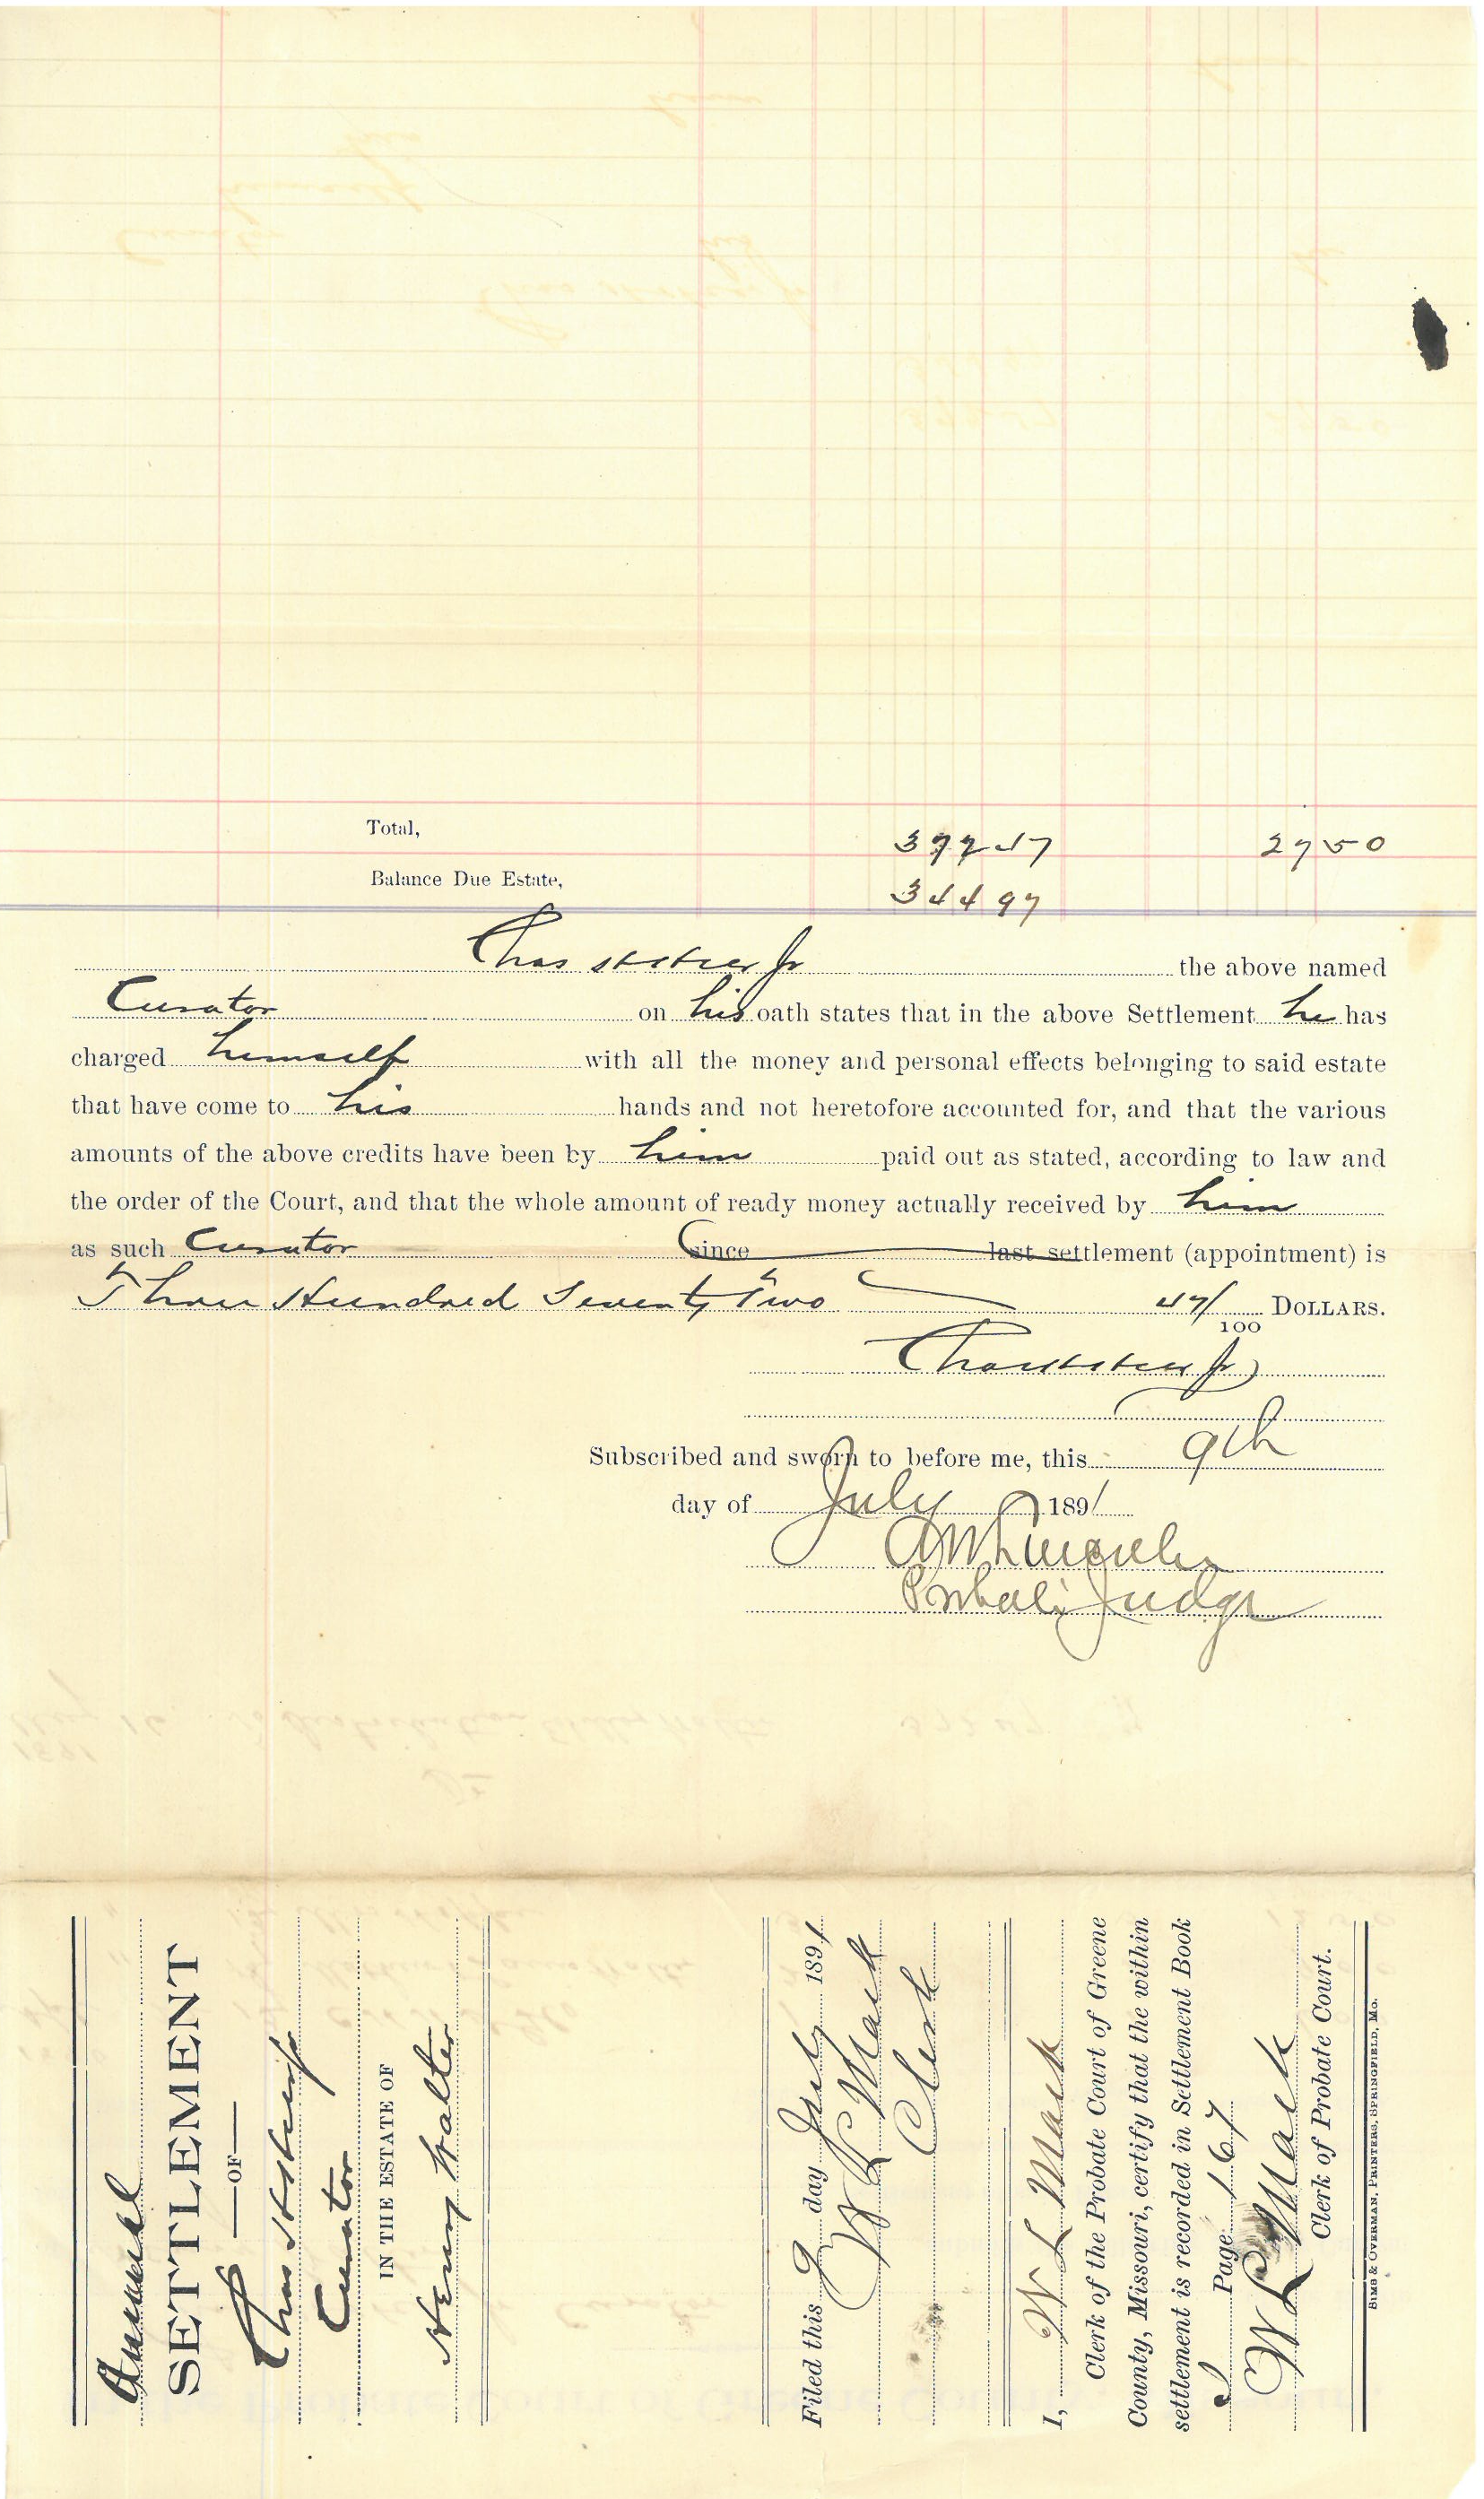 Total, 372 47 27 50
Balance Due Estate, 344 97
Chas Jr the above named
Curator on his oath states that in the above Settlement he has
charged himself with all the money and personal effects belonging to said estate
that have come to his hands and not heretofore accounted for, and that the various
amounts of the above credits have been by him paid out as stated, according to law and
the order of the Court, and that the whole amount of ready money actually received by him
as such Curator since last settlement (appointment) is
Three Hundred Seventy Two 47/100 DOLLARS.
Chas Jr
Subscribed and sworn to before me, this 9th
day of July 1891
Probate Judge
Annual
SETTLEMENT
—OF—
Chas Jr
Curator
IN THE ESTATE OF
Henry Walter
Filed this 9 day July 1891
W L Mack
Clerk
I, W L Mack
Clerk of the Probate Court of Greene
County, Missouri, certify that the within
settlement is recorded in Settlement Book
Page 167
W L Mack
Clerk of Probate Court.
SIMS & OVERMAN, PRINTERS, SPRINGFIELD, MO.